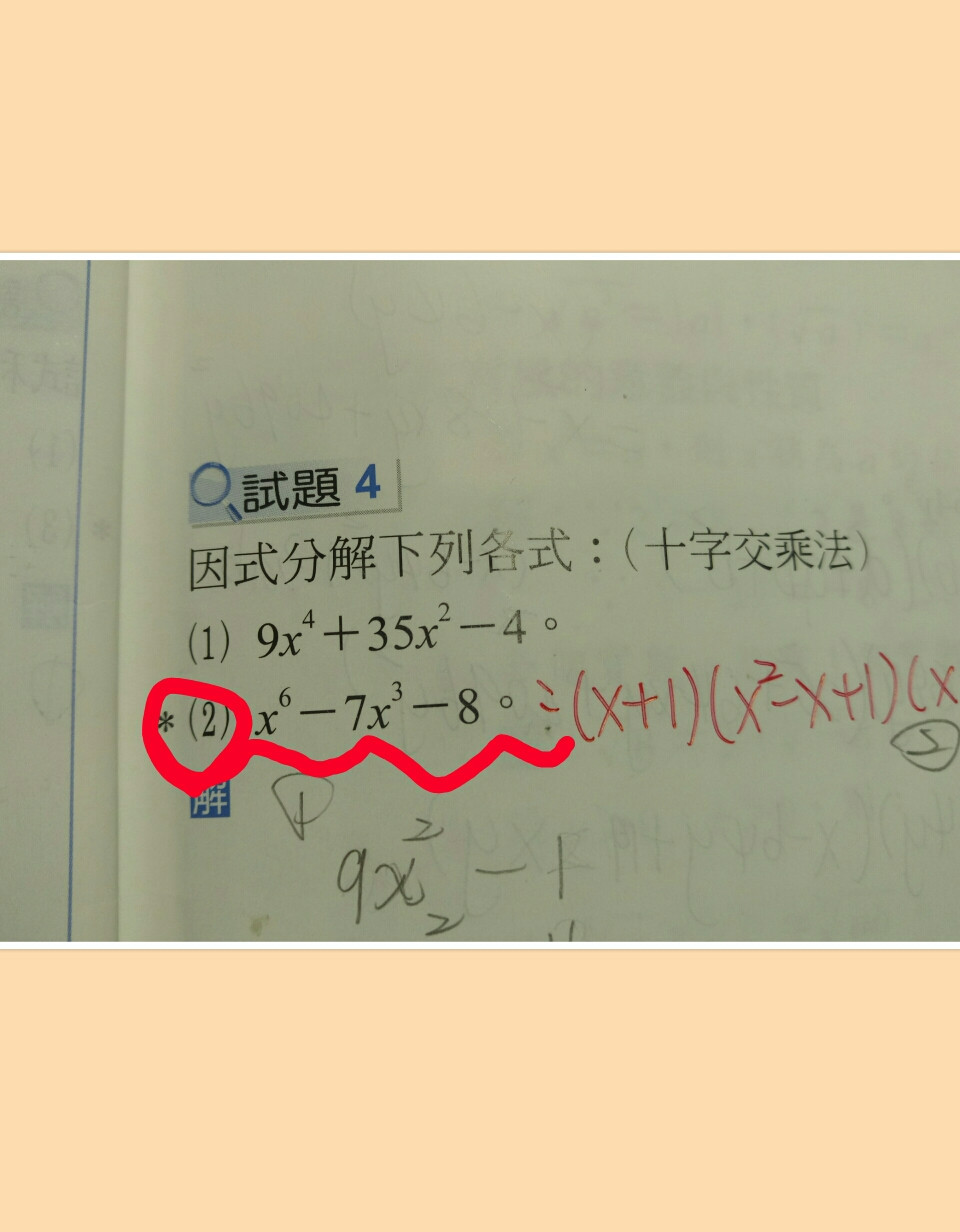 試題 4
因式分解下列各式：(十字交乘法)
(1) 9x⁴+35x²−4。
*(2) x⁶−7x³−8。 =(x+1)(x²-x+1)(x
解
9x² − 1